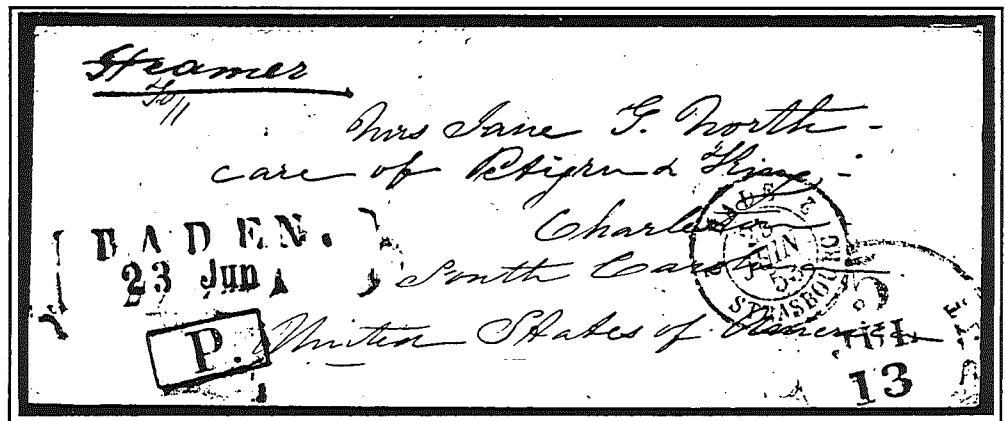 Steamer
Mrs Jane G. North -
care of Petigru & King -
Charleston
South Carolina
United States of America
BADEN.
23 Jun
P.
BADE 2
23
JUIN
53
STRASBOURG
JUL
13